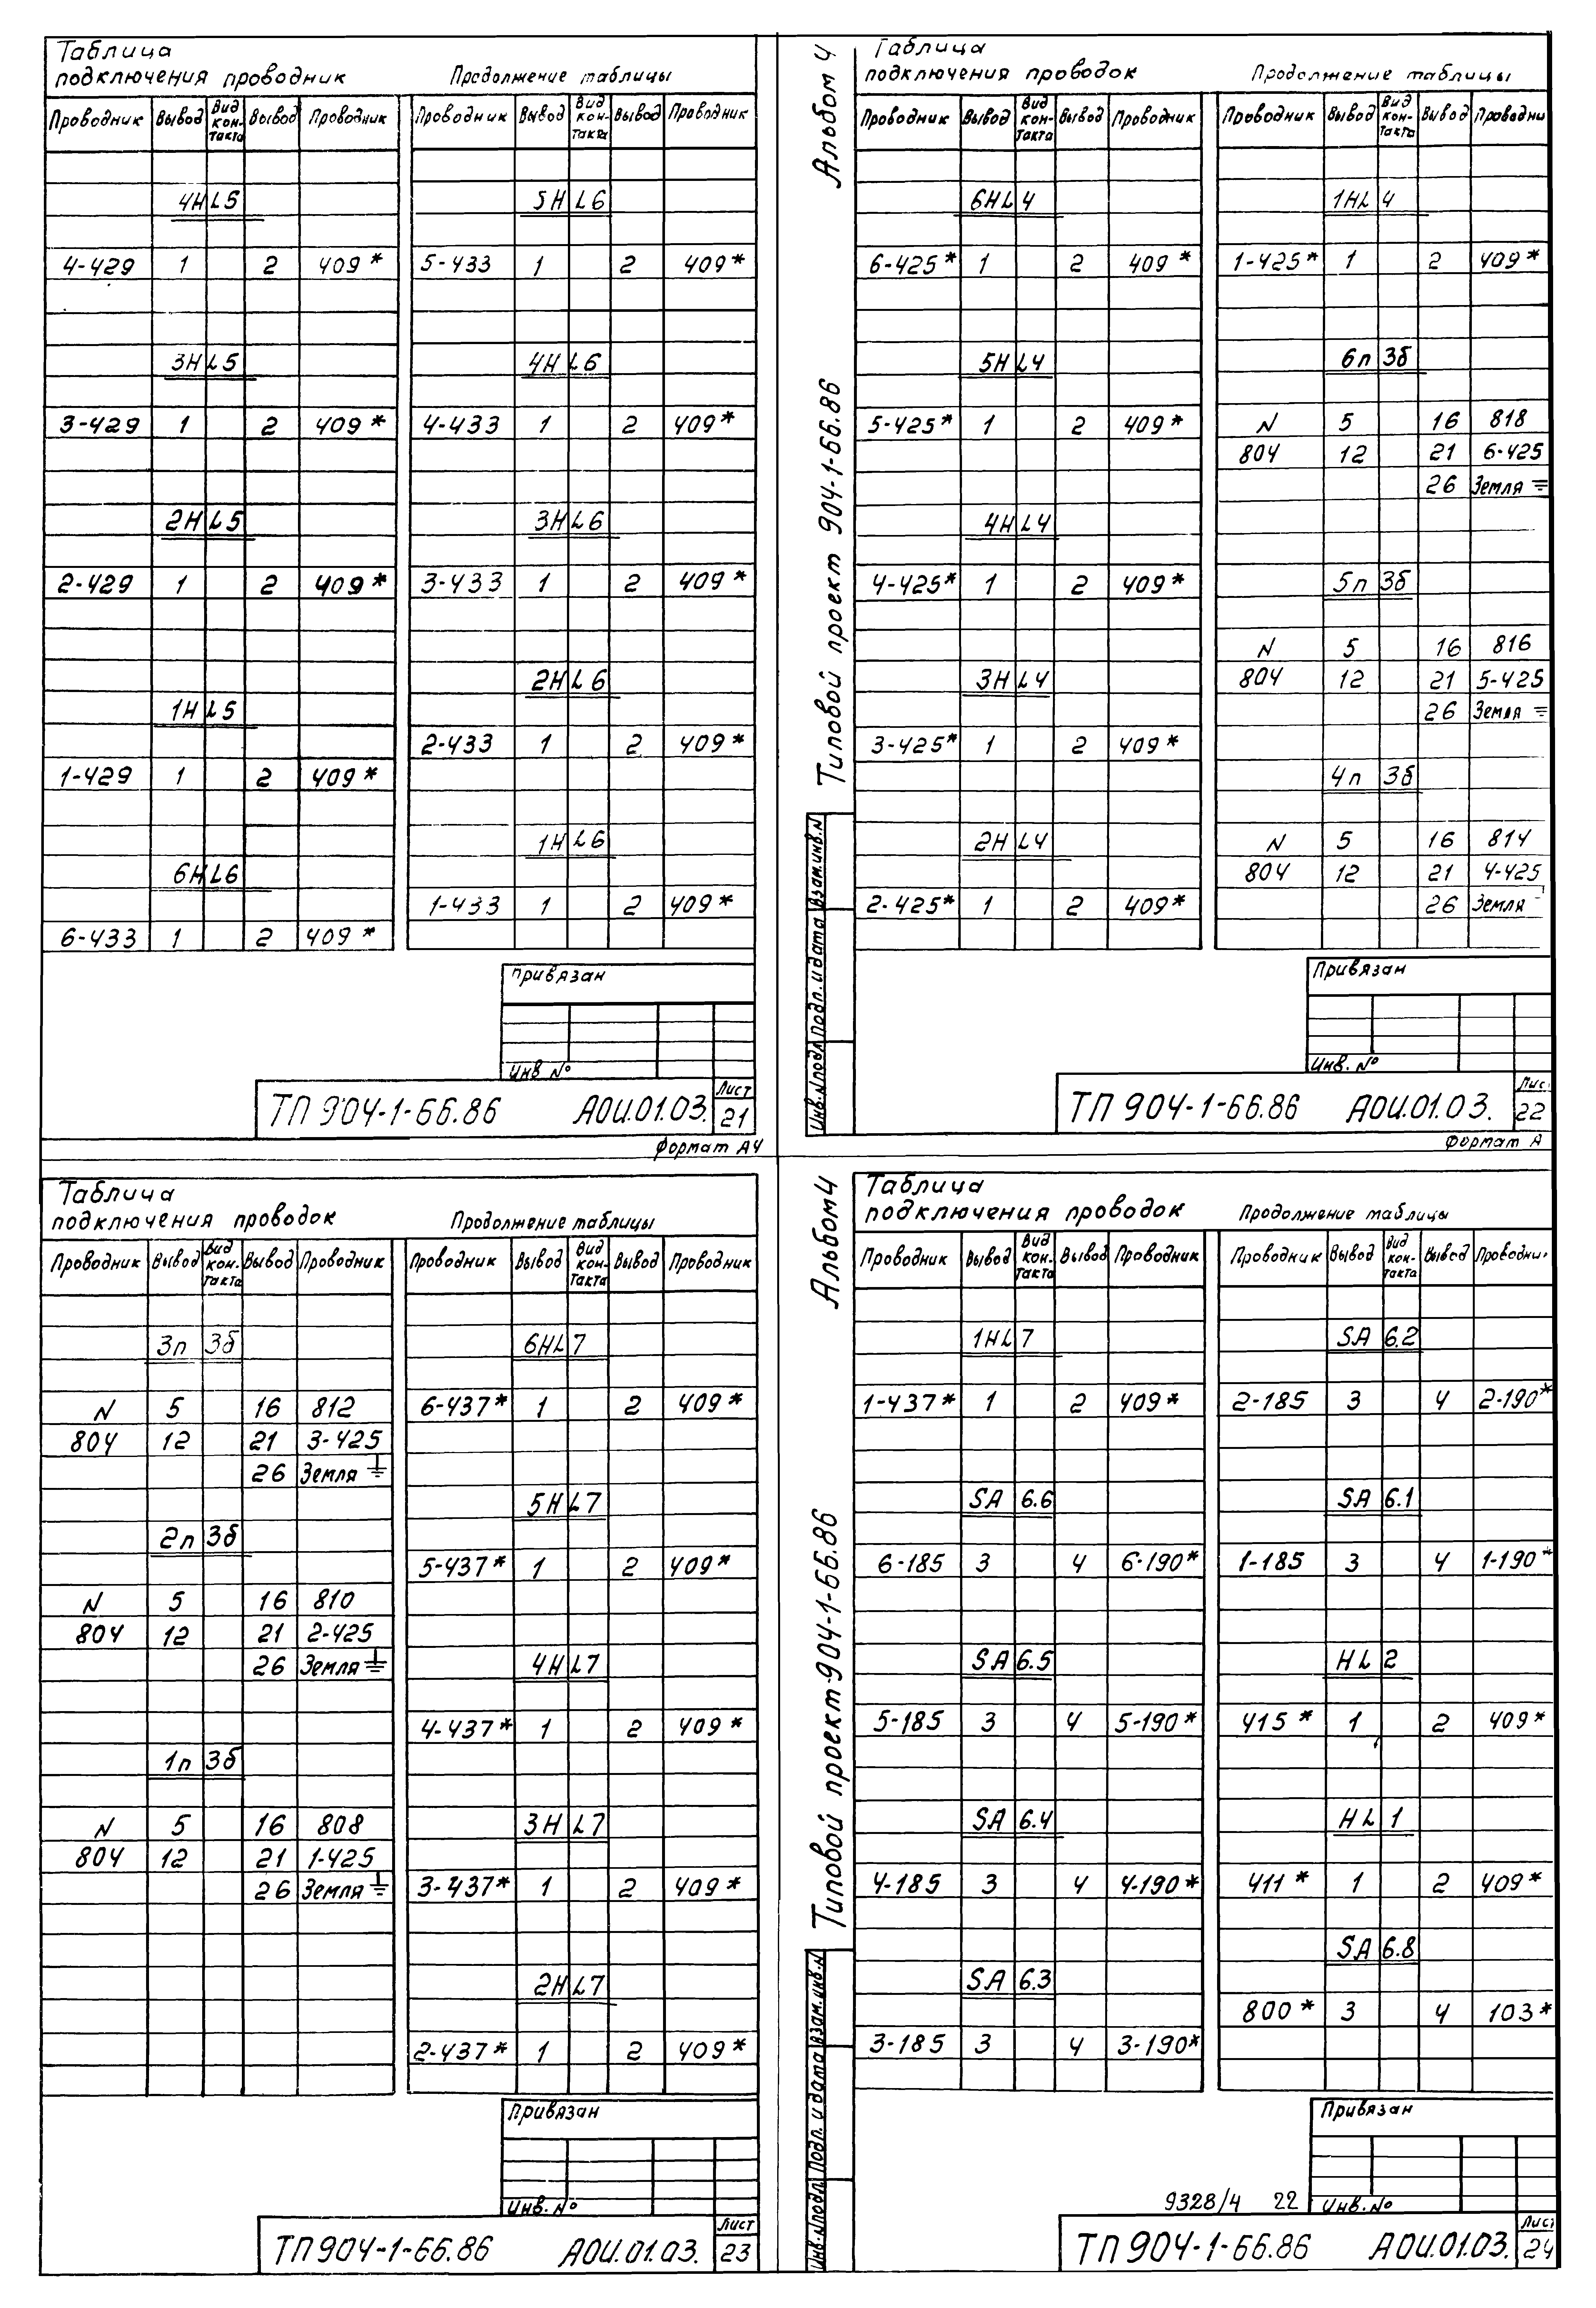 Таблица
подключения проводник
Продолжение таблицы
Проводник Вывод Вид контакта Вывод Проводник
4HL5
4-429 1 2 409*
3HL5
3-429 1 2 409*
2HL5
2-429 1 2 409*
1HL5
1-429 1 2 409*
6HL6
6-433 1 2 409*
Проводник Вывод Вид контакта Вывод Проводник
5HL6
5-433 1 2 409*
4HL6
4-433 1 2 409*
3HL6
3-433 1 2 409*
2HL6
2-433 1 2 409*
1HL6
1-433 1 2 409*
Привязан
Инв. №
ТП 904-1-66.86 АОИ.01.03. Лист 21
Формат А4
Альбом 4
Типовой проект 904-1-66.86
Взам.инв.N
Подп. и дата
Инв.N подл
Таблица
подключения проводок
Продолжение таблицы
Проводник Вывод Вид кон-такта Вывод Проводник
6HL4
6-425* 1 2 409*
5HL4
5-425* 1 2 409*
4HL4
4-425* 1 2 409*
3HL4
3-425* 1 2 409*
2HL4
2-425* 1 2 409*
Проводник Вывод Вид кон-такта Вывод Проводни
1HL4
1-425* 1 2 409*
6п 3б
N 5 16 818
804 12 21 6-425
26 Земля
5п 3б
N 5 16 816
804 12 21 5-425
26 Земля
4п 3б
N 5 16 814
804 12 21 4-425
26 Земля
Привязан
Инв. №
ТП 904-1-66.86 АОИ.01.03. Лис 22
Формат А
Таблица
подключения проводок
Продолжение таблицы
Проводник Вывод Вид кон-такта Вывод Проводник
3п 3б
N 5 16 812
804 12 21 3-425
26 Земля
2п 3б
N 5 16 810
804 12 21 2-425
26 Земля
1п 3б
N 5 16 808
804 12 21 1-425
26 Земля
Проводник Вывод Вид кон-такта Вывод Проводник
6HL7
6-437* 1 2 409*
5HL7
5-437* 1 2 409*
4HL7
4-437* 1 2 409*
3HL7
3-437* 1 2 409*
2HL7
2-437* 1 2 409*
Привязан
Инв. №
ТП 904-1-66.86 АОИ.01.03. Лист 23
Альбом 4
Типовой проект 904-1-66.86
Взам.инв.N
Подп. и дата
Инв.N подл
Таблица
подключения проводок
Продолжение таблицы
Проводник Вывод Вид кон-такта Вывод Проводник
1HL7
1-437* 1 2 409*
SA 6.6
6-185 3 4 6-190*
SA 6.5
5-185 3 4 5-190*
SA 6.4
4-185 3 4 4-190*
SA 6.3
3-185 3 4 3-190*
Проводник Вывод Вид кон-такта Вывод Проводни
SA 6.2
2-185 3 4 2-190*
SA 6.1
1-185 3 4 1-190*
HL 2
415* 1 2 409*
HL 1
411* 1 2 409*
SA 6.8
800* 3 4 103*
Привязан
9328/4 22
Инв. №
ТП 904-1-66.86 АОИ.01.03. Лист 24